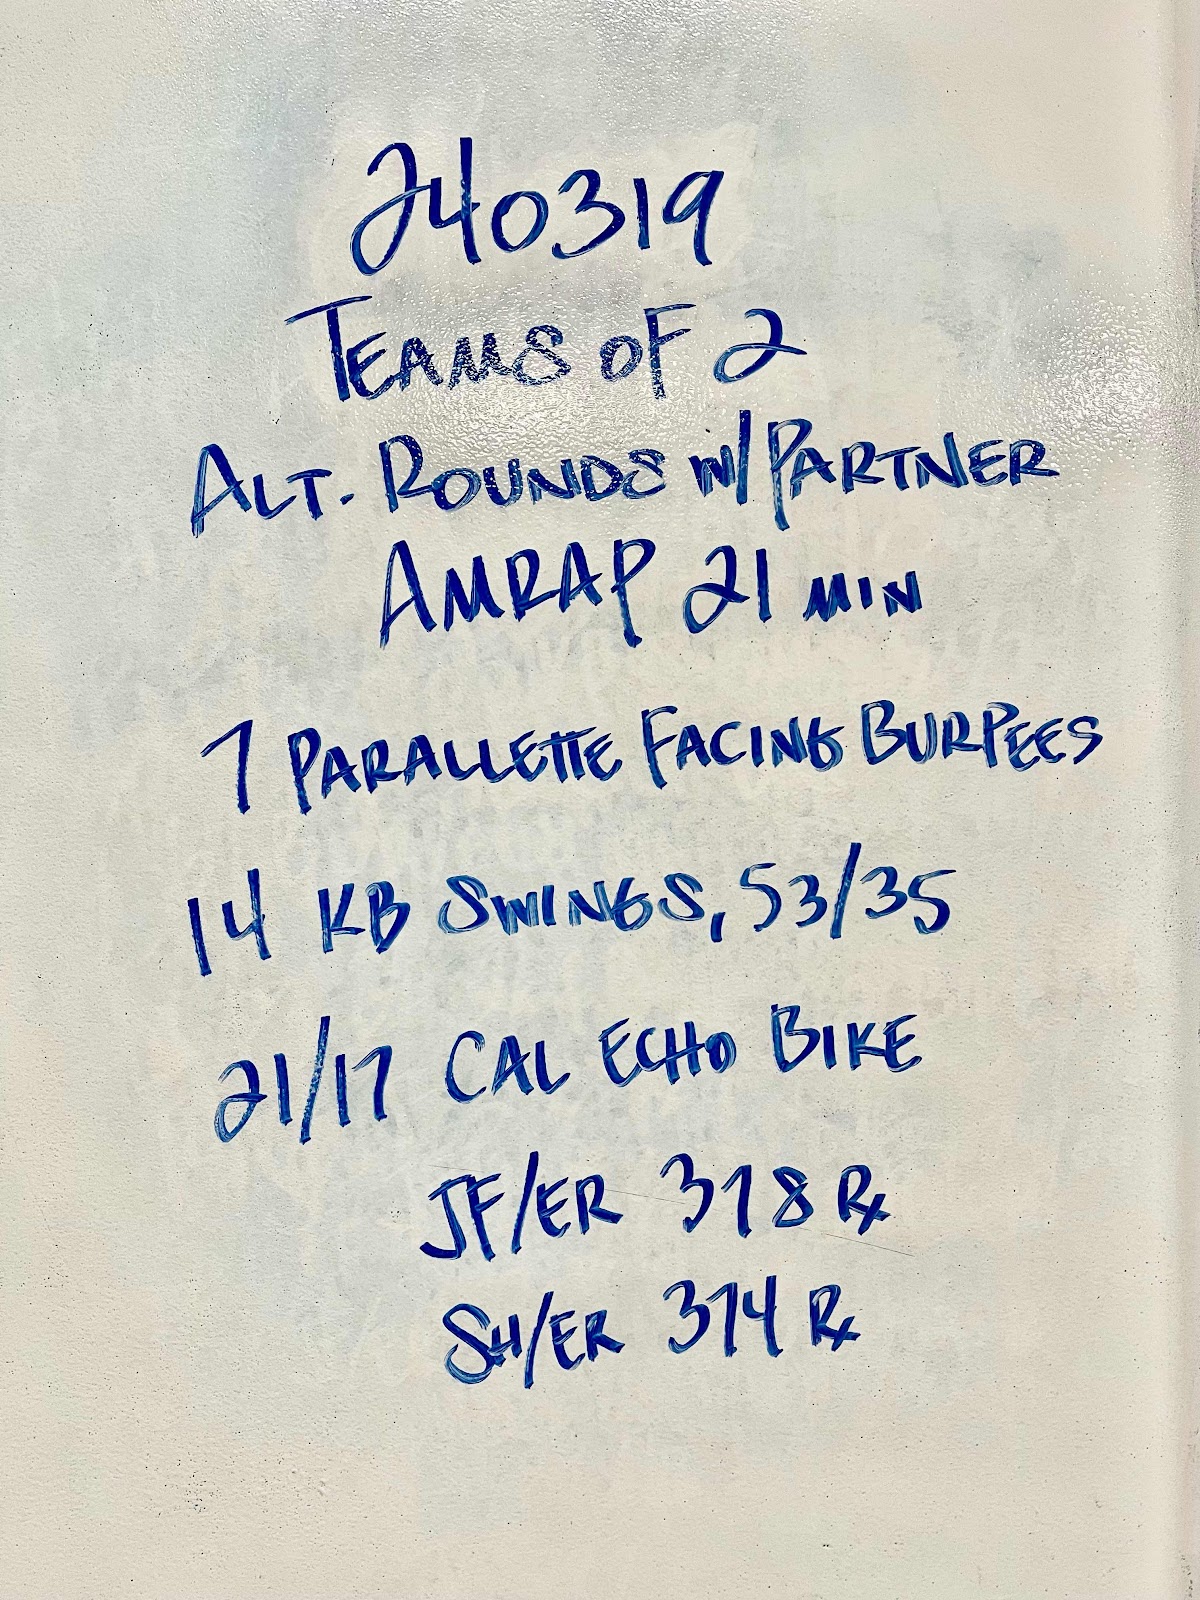 240319
TEAMS OF 2
ALT. ROUNDS W/ PARTNER
AMRAP 21 MIN
7 PARALLETTE FACING BURPEES
14 KB SWINGS, 53/35
21/17 CAL ECHO BIKE
JF/ER 378 Rx
SH/ER 374 Rx